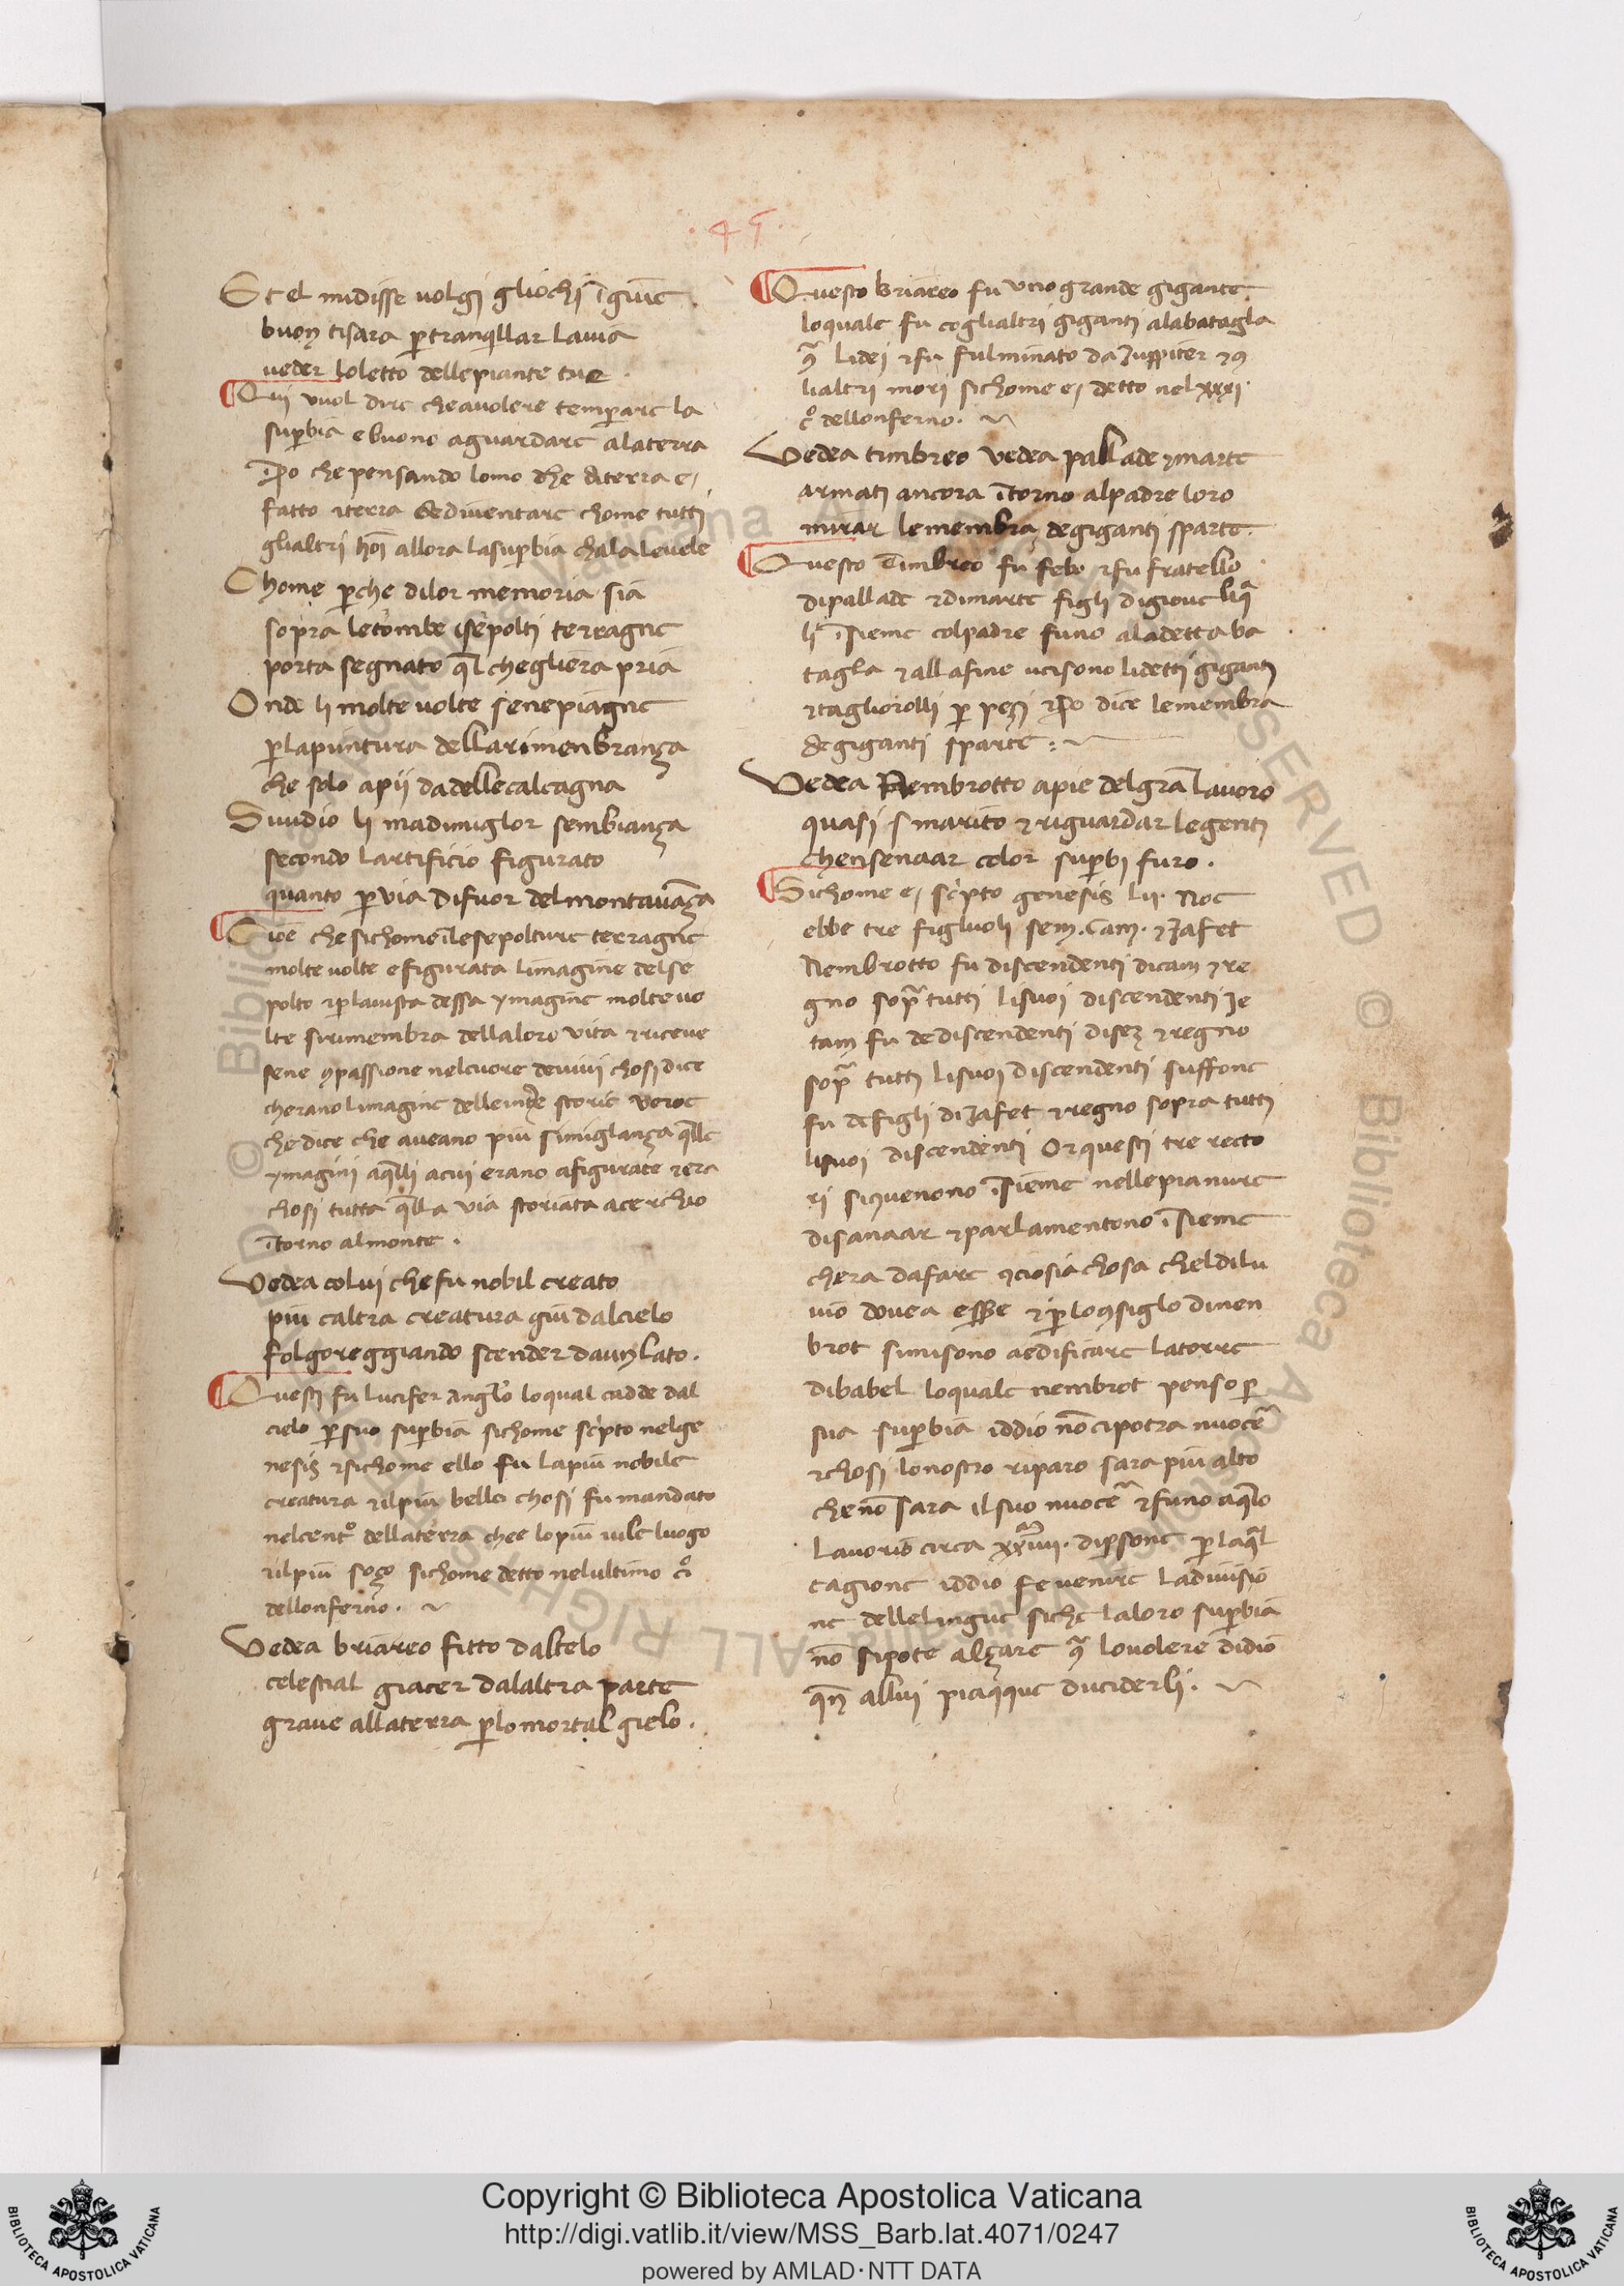 .45.
Et el midisse volgi gliochi ī giue
buon tisara ꝑtranqillar lauia
ueder loletto dellepiante tue.
Qui vuol dire cheauolere temperare la
suꝑbia ebuono aguardare alaterra
īꝑo che pensando lomo che diterra e
fatto iterra dediuentare chome tutti
glialtri hoī allora lasuꝑbia chala leuele
Chome ꝑche dilor memoria sia
sopra letombe isepolti terragne
porta segnato ql̄ chegliera pria
Onde li molte uolte senepiagne
ꝑlapuntura dellarimenbranza
che solo apij dadellecalcagna
Siuudio li madimiglor sembianza
secondo lartificio figurato
quanto ꝑ via difuor delmontauāza
Cioe che sichome īlesepolture terragne
molteuolte efigurata limagine delse
polto ⁊ꝑlauista dessa ymagine molteuo
lte sirimembra dellaloro vita ⁊riceue
sene ꝯpassione nelcuore deuiui chosi dice
cherano limagine delle storie
che dice che aueano piu simiglanza qll̄e
ymagini aqll̄i acui erano afigurate ⁊era
chosi tutta qll̄a via storiata acerchio
ītorno almonte.
Vedea colui chefu nobil creato
piu caltra creatura giu dalcielo
folgoreggiando scender daunlato.
Questi fu lucifer anglo loqual cadde dal
cielo ꝑsuo suꝑbia sichome scīpto nelge
nesis ⁊sichome ello fu lapiu nobile
creatura ⁊ilpiu bello chosi fumandato
nelcentº dellaterra chee lopiu uile luogo
⁊ilpiu sozo sichome detto nelultimo cº
dellonferno.
Vedea briareo fitto daltelo
celestial giacer dalaltra parte
graue allaterra ꝑlomortal gielo.
Questo briareo fu uno grande gigante
loquale fu coglialtri giganti alabatagla
ꝯª lidei ⁊fu fulminato da Juppiter ⁊ꝯ
lialtri mori sichome e detto nel xxxi.
cº dellonferno.
Vedea timbreo vedea pallade ⁊marte
armati ancora ītorno alpadre loro
mirar lemembra degiganti sparte.
Questo timbreo fu febo ⁊fu fratello
dipallade ⁊dimarte figli digioue liq̄
li īsieme colpadre funo aladetta ba
tagla ⁊allafine ucisono lidetti giganti
⁊tagliorolli ꝑ pezi ⁊ꝑo dice lemembra
degiganti sparte:
Vedea Nembrotto apie delgrā lauoro
quasi smarito ⁊riguardar legenti
chensenaar color suꝑbi furo.
Sichome e scīpto genesis lii. Noe
ebbe tre figluoli sem. Cam. ⁊Jafet
Nembrotto fu discendenti dicam ⁊re
gno sopª tutti lisuoi discendenti Je
tam fu dediscendenti disez ⁊regno
sopª tutti lisuoi discendenti suffone
fu defigli diJafet ⁊regno sopra tutti
lisuoi discendenti Or questi tre recto
ri siꝯuenono īsieme nellepianure
disanaar ⁊parlamentono īsieme
chera dafare ꝯciosia chosa cheldilu
uio douea esse ⁊ꝑ loꝯsiglo dinen
brot simisono aedificare latorre
dibabel loquale nembrot penso ꝑ
sua suꝑbia iddio nō cipotra nuocē
⁊chosi lonostro riparo sara piu alto
chenō sara il suo nuocē ⁊funo aqll̄o
lauorio circa dipersone ꝑ laql̄
cagione iddio fe uenire ladiuisio
ne dellelingue siche laloro suꝑbia
nō sipote alzare ꝯª louolere didio
qn̄ allui piacque duciderli.
Copyright © Biblioteca Apostolica Vaticana
http://digi.vatlib.it/view/MSS_Barb.lat.4071/0247
powered by AMLAD·NTT DATA
BIBLIOTECA APOSTOLICA VATICANA
BIBLIOTECA APOSTOLICA VATICANA